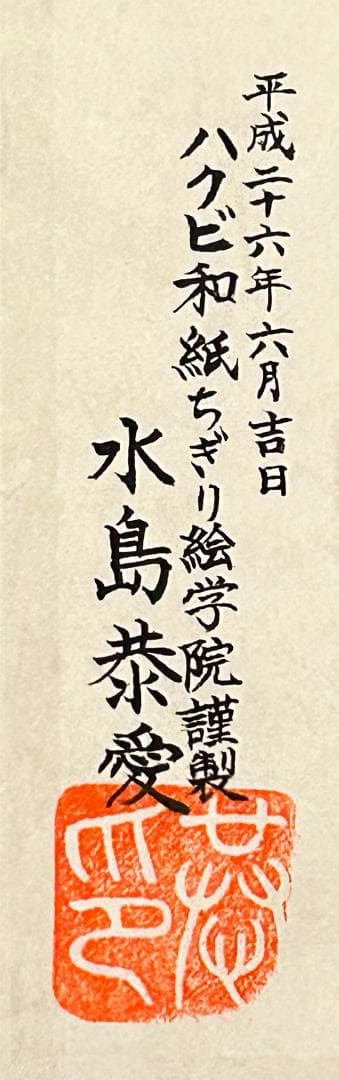 平成二十六年六月吉日
ハクビ和紙ちぎり絵学院謹製
水島恭愛
恭印